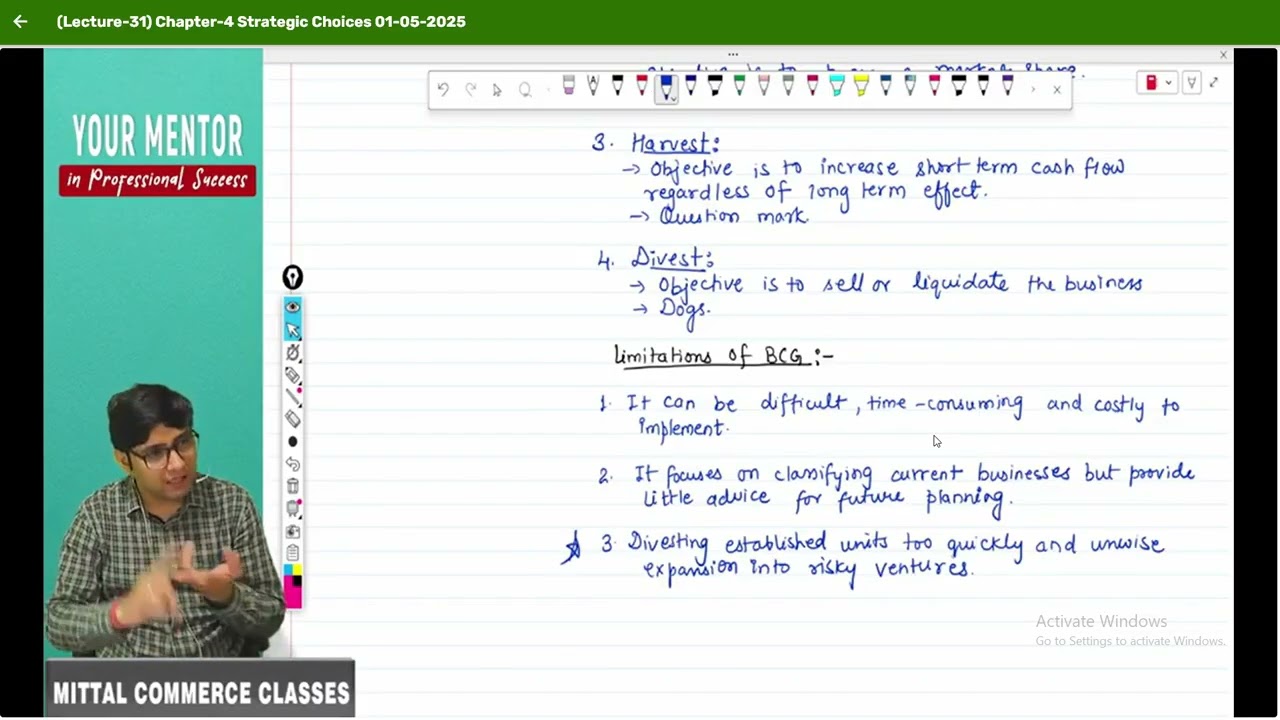 (Lecture-31) Chapter-4 Strategic Choices 01-05-2025
YOUR MENTOR
in Professional Success
market share.
3. Harvest:
→ Objective is to increase short term cash flow
regardless of long term effect.
→ Question mark.
4. Divest:
→ Objective is to sell or liquidate the business
→ Dogs.
Limitations of BCG :-
1. It can be difficult, time-consuming and costly to
implement.
2. It focuses on classifying current businesses but provide
little advice for future planning.
3. Divesting established units too quickly and unwise
expansion into risky ventures.
Activate Windows
Go to Settings to activate Windows.
MITTAL COMMERCE CLASSES